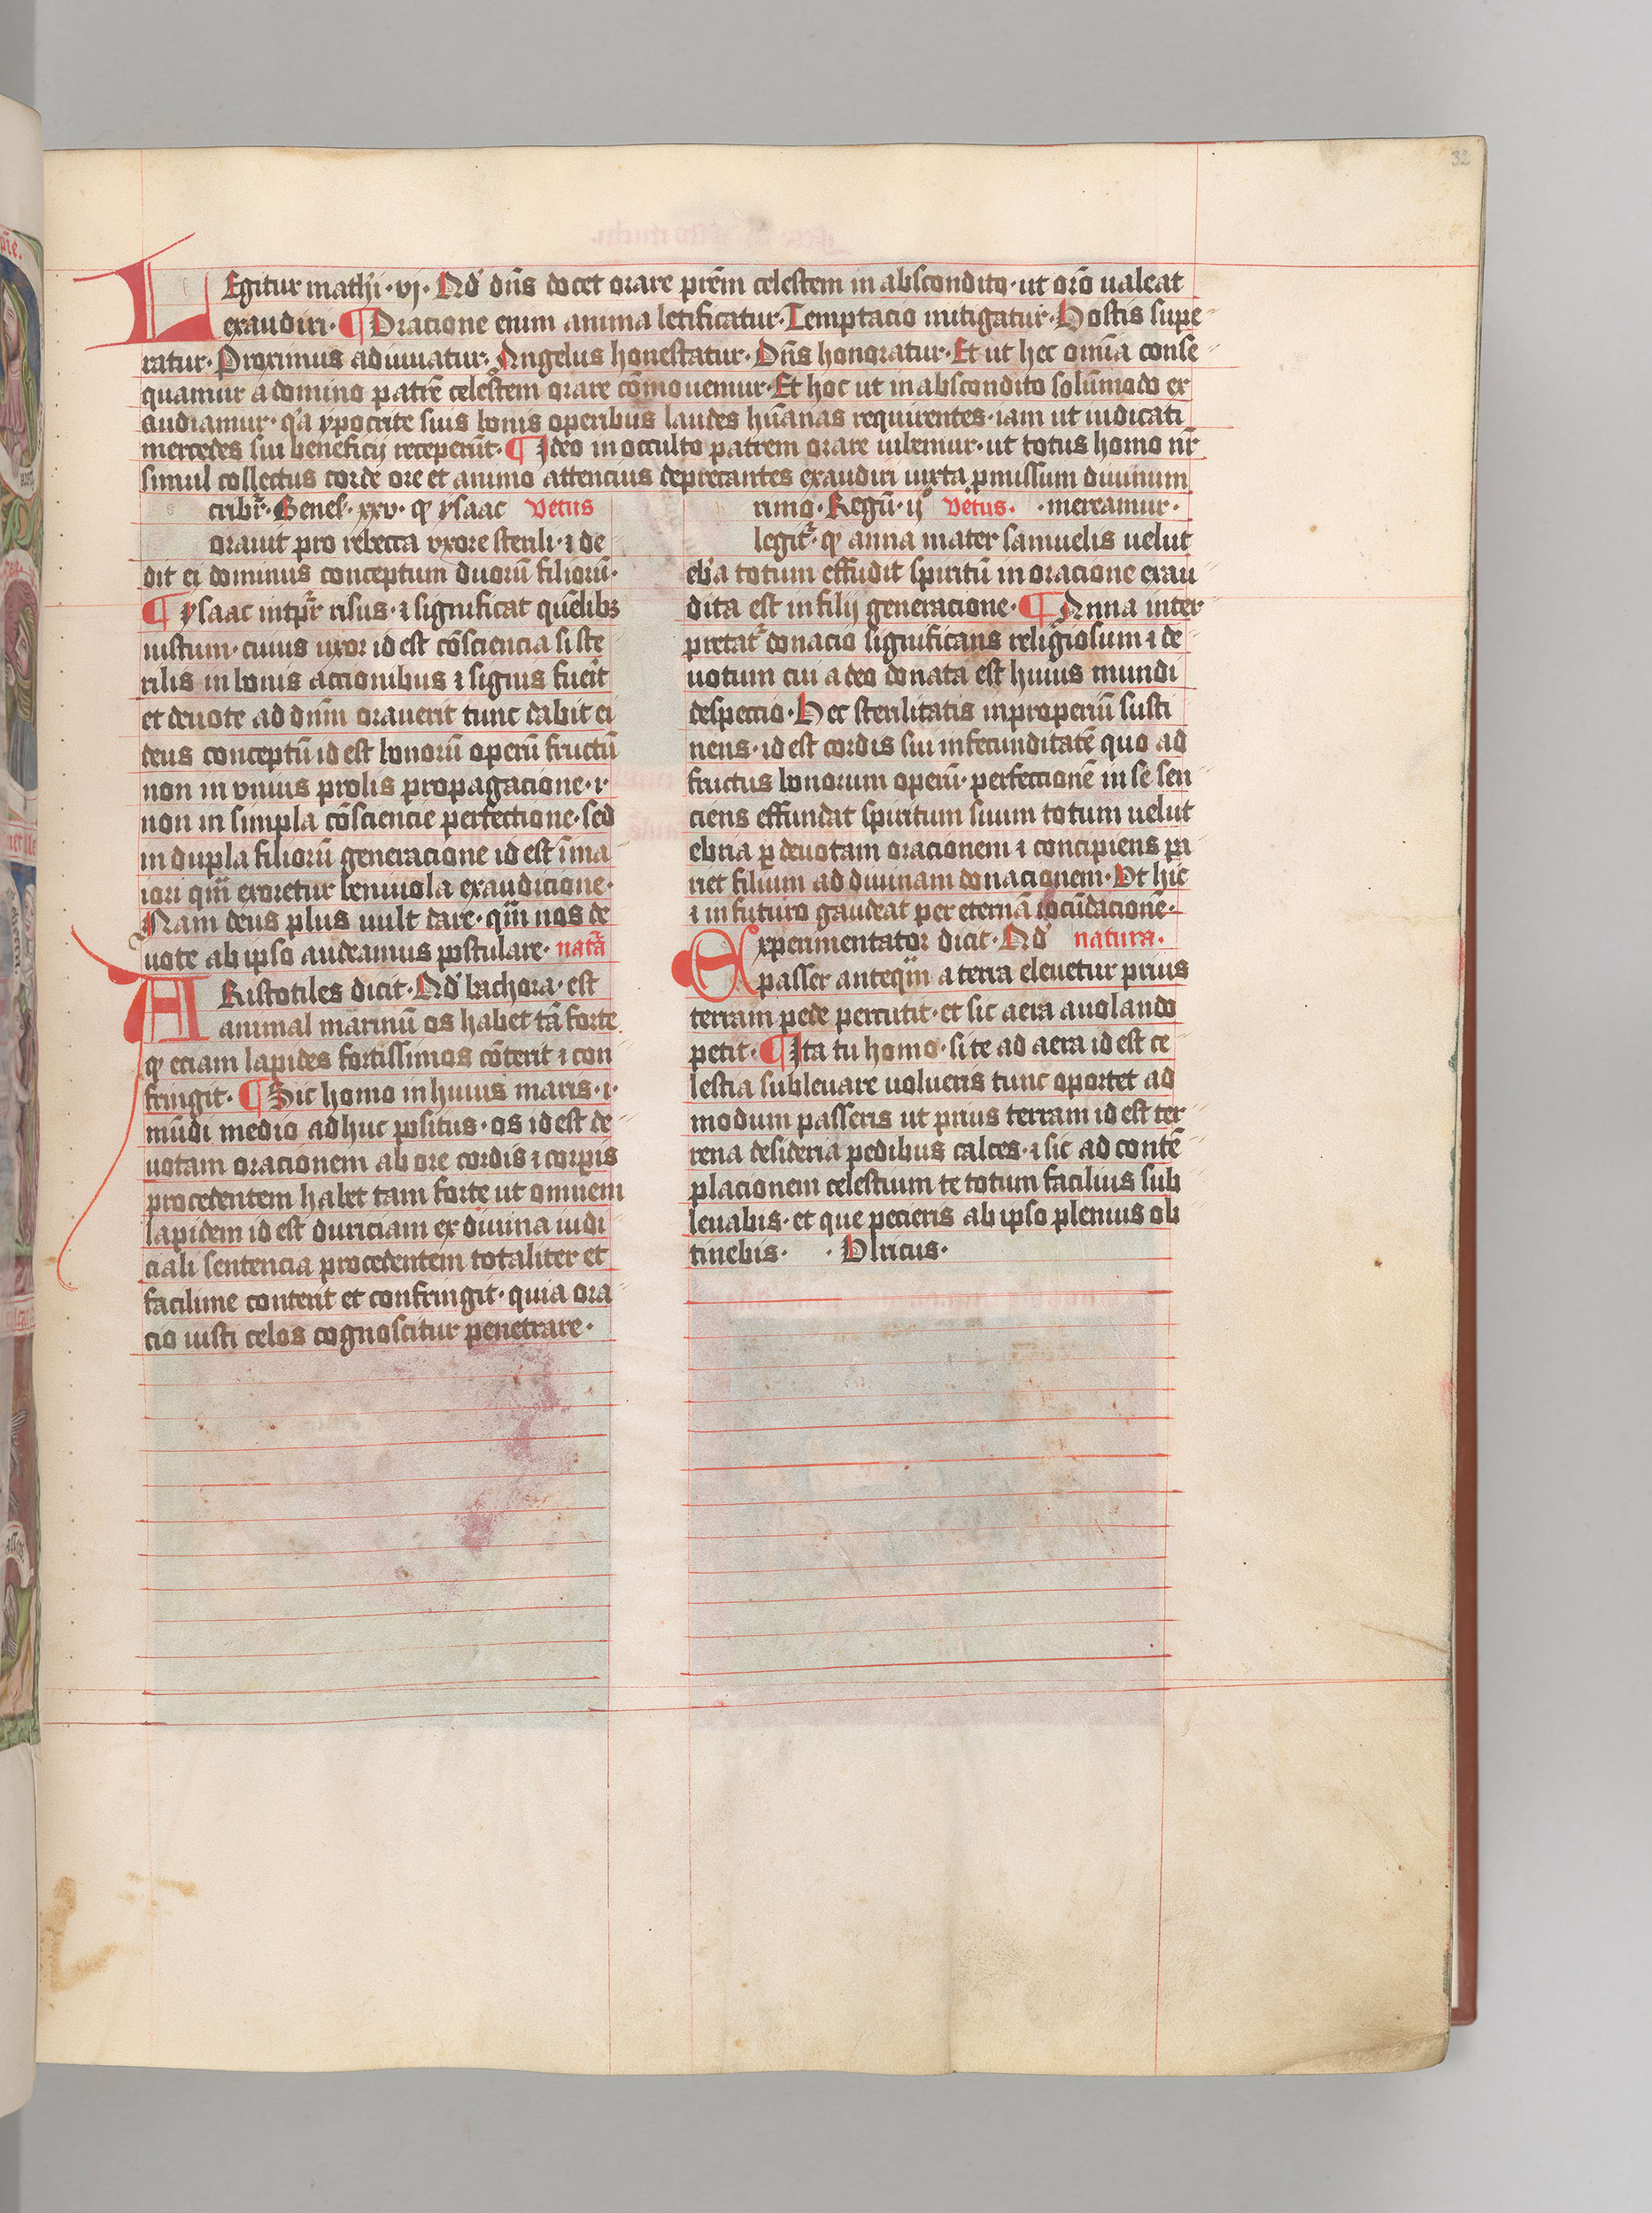 32
LEgitur mathi · vj · Qd' dns docet orare prem celestem in abscondito · ut oro ualeat
exaudiri · ¶ Oracione enim anima letificatur · Temptacio mitigatur · Hostis supe
ratur · Proximus adiuuatur · Angelus honestatur · Dns honoratur · Et ut hec omia conse
quamur a domino patre celestem orare comouemur · Et hoc ut in abscondito solummodo ex
audiamur · q'a ypocrite suis bonis operibus laudes humanas requirentes · iam ut iudicati
mercedes sui beneficij receperut · ¶ Ideo in occulto patrem orare iubemur · ut totus homo nr
simul collectus corde ore et animo attencius deprecantes exaudiri iuxta pmissum diuinum
cribr · Genes · xxv · q ysaac vetus
orauit pro rebecca vxore sterili · ⁊ de
dit ei dominus conceptum duoru filioru ·
¶ ysaac intptr risus · ⁊ significat quelibꝫ
iustum · cuius uxor id est cosciencia si ste
rilis in bonis accionibus ⁊ signis fuerit
et deuote ad dnm orauerit tunc dabit ei
deus conceptu id est bonoru operu fructu
non in vnius prolis propagacione · ⁊
non in simpla cosciencie perfectione · sed
in dupla filioru generacione id est i ma
iori qm exoretur beniuola exaudicione ·
Nam deus plus uult dare · qm nos de
uote ab ipso audeamus postulare · nata
ARistotiles dicit · Qd' bachora · est
animal marinu os habet ta forte
q eciam lapides fortissimos coterit ⁊ con
fringit · ¶ Sic homo in huius maris · i ·
mudi medio adhuc positus · os id est de
uotam oracionem ab ore cordis ⁊ corpis
procedentem habet tam forte ut omnem
lapidem id est duriciam ex diuina iudi
ciali sentencia procedentem totaliter et
facilime conterit et confringit · quia ora
cio iusti celos cognoscitur penetrare ·
rimo · Regu · ij vetus · · mereamur ·
legitr · q anna mater samuelis uelut
eb'a totum effudit spiritu in oracione exau
dita est in filij generacione · ¶ Anna inter
pretatr donacio significans religiosum ⁊ de
uotum cui a deo donata est huius mundi
despectio · Hec sterilitatis inproperiu susti
nens · id est cordis sui infecunditate quo ad
fructus bonorum operu · perfectione in se sen
ciens effundat spiritum suum totum uelut
ebria p deuotam oracionem ⁊ concipiens pa
riet filium ad diuinam donacionem · Vt hic
⁊ in futuro gaudeat per eterna iocudacione ·
Experimentator dicit · Qd' natura ·
passer anteqm a terra eleuetur prius
terram pede percutit · et sic aera auolando
petit · ¶ Ita tu homo · si te ad aera id est ce
lestia subleuare uolueris tunc oportet ad
modum passeris ut prius terram id est ter
rena desideria pedibus calces · ⁊ sic ad conte
placionem celestium te totum facilius sub
leuabis · et que pecieris ab ipso plenius ob
tinebis · · Vlricus ·